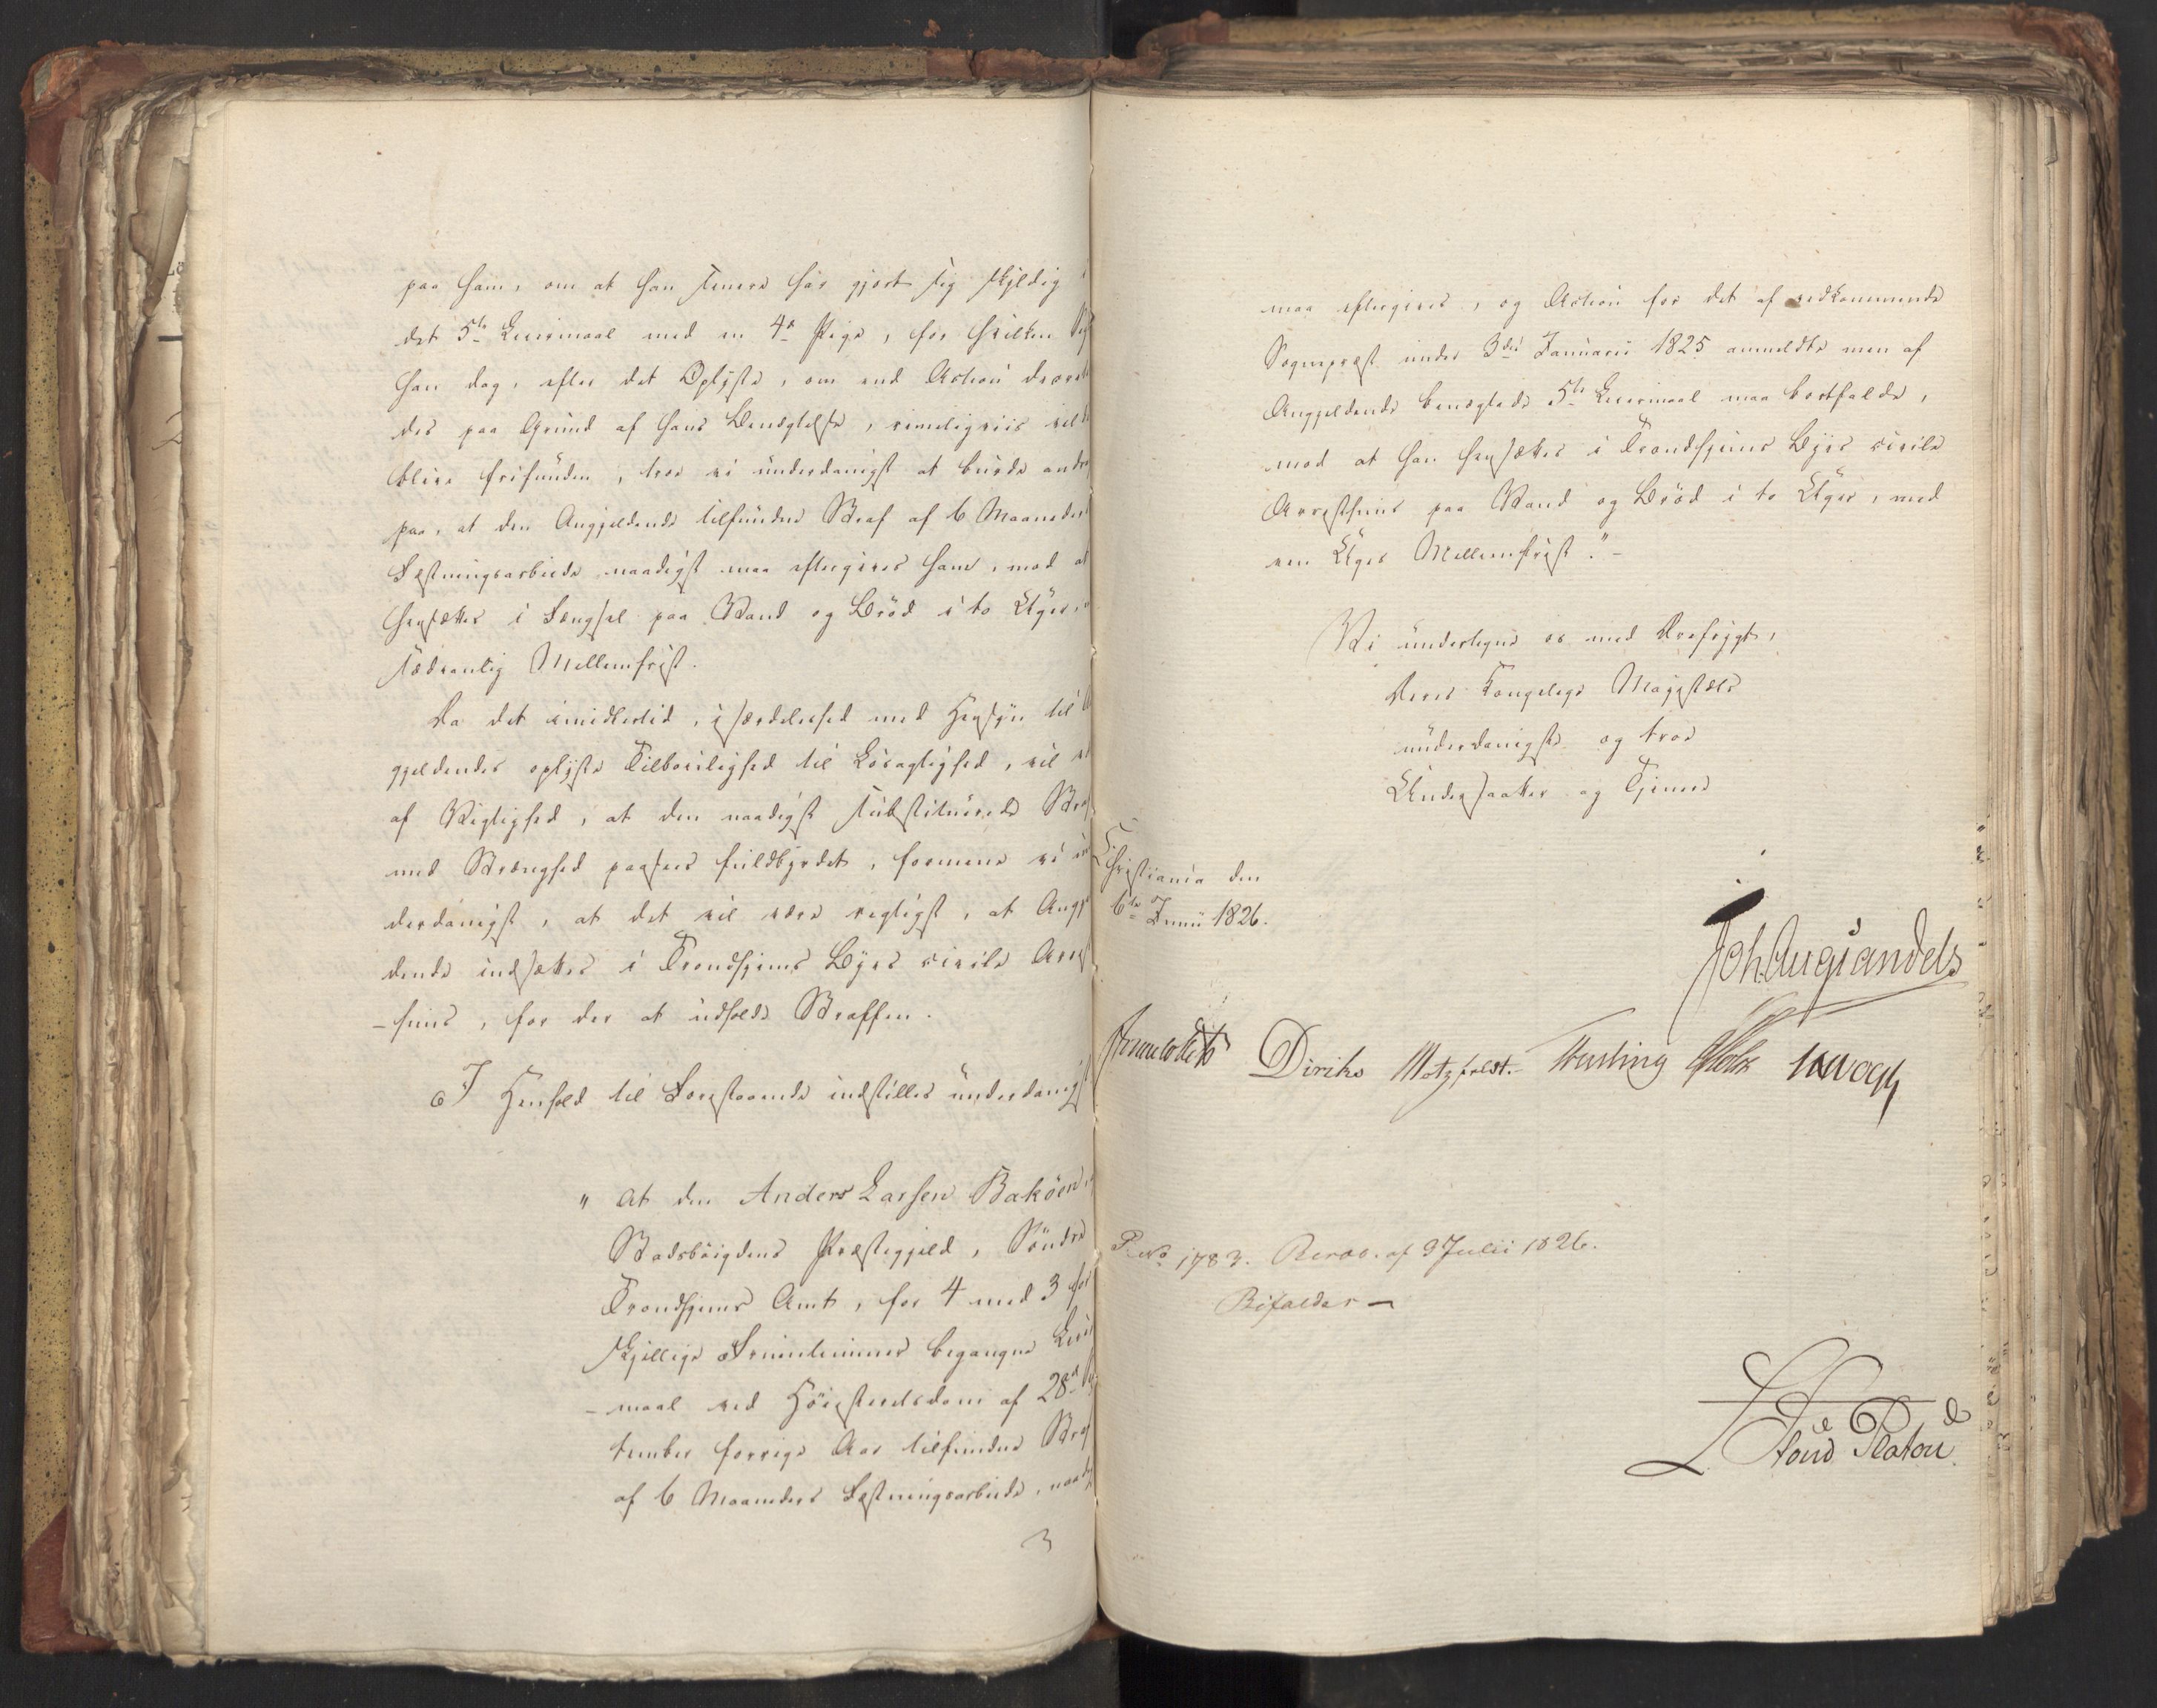 paa ham, om at han senere har gjort sig skyldig i
det 5te Leiermaal med en 4de Pige, for hvilken
han dog, efter det Oplyste, om end Action
des paa Grund af hans Benægtelse, rimeligviis vilde
blive frifunden, troe vi underdanigst at burde andra
paa, at den Angjeldende tilfundne Straf af 6 Maaneders
Fæstningsarbeide naadigst maa eftergives ham, mod at
hensættes i Fængsel paa Vand og Brød i to Uger,
sædvanlig Mellemfrist.
Da det imidlertid, i særdeleshed med Hensyn til
gjeldendes oplyste Tilbøilighed til Løsagtighed, vil
af Vigtighed, at den naadigst substituerede Straf
med Strænghed paasees fuldbyrdet, formene vi un
derdanigst, at det vil være rigtigst, at Angjel
dende indsættes i Trondhjems Byes civile Arrest
-huus, for der at udholde Straffen.
I Henhold til Forestaaende indstilles underdanigst
" at den Anders Larsen Bakøen
Stadsbøigdens Præstegjeld, Søndre
Trondhjems Amt, for 4 med 3 for
skjellige Fruentimmer begangne Leier
-maal ved Høiesteretsdom af 28de Sep
tember forrige Aar tilfundne Straf
af 6 Maaneders Fæstningsarbeide, naadigst
maa eftergives, og Action for det af vedkommende
Sognepræst under 3die Januarii 1825 anmeldte men af
Angjeldende benægtede 5te Leiermaal maa bortfalde,
mod at han hensættes i Trondhjems Byes civile
Arresthuus paa Vand og Brød i to Uger, med
een Uges Mellemfrist."-
Vi undertegne os med Dyrefrygt,
Deres Kongelige Majestæts
underdanigste og troe
Undersaatter og Tjenere
Christiania den
6te Junii 1826.
Joh. Aug Sandels
Diriks Motzfeldt. Treschow
P. No 1783. Resol. af 9 Julii 1826.
Bifaldes -
Platou